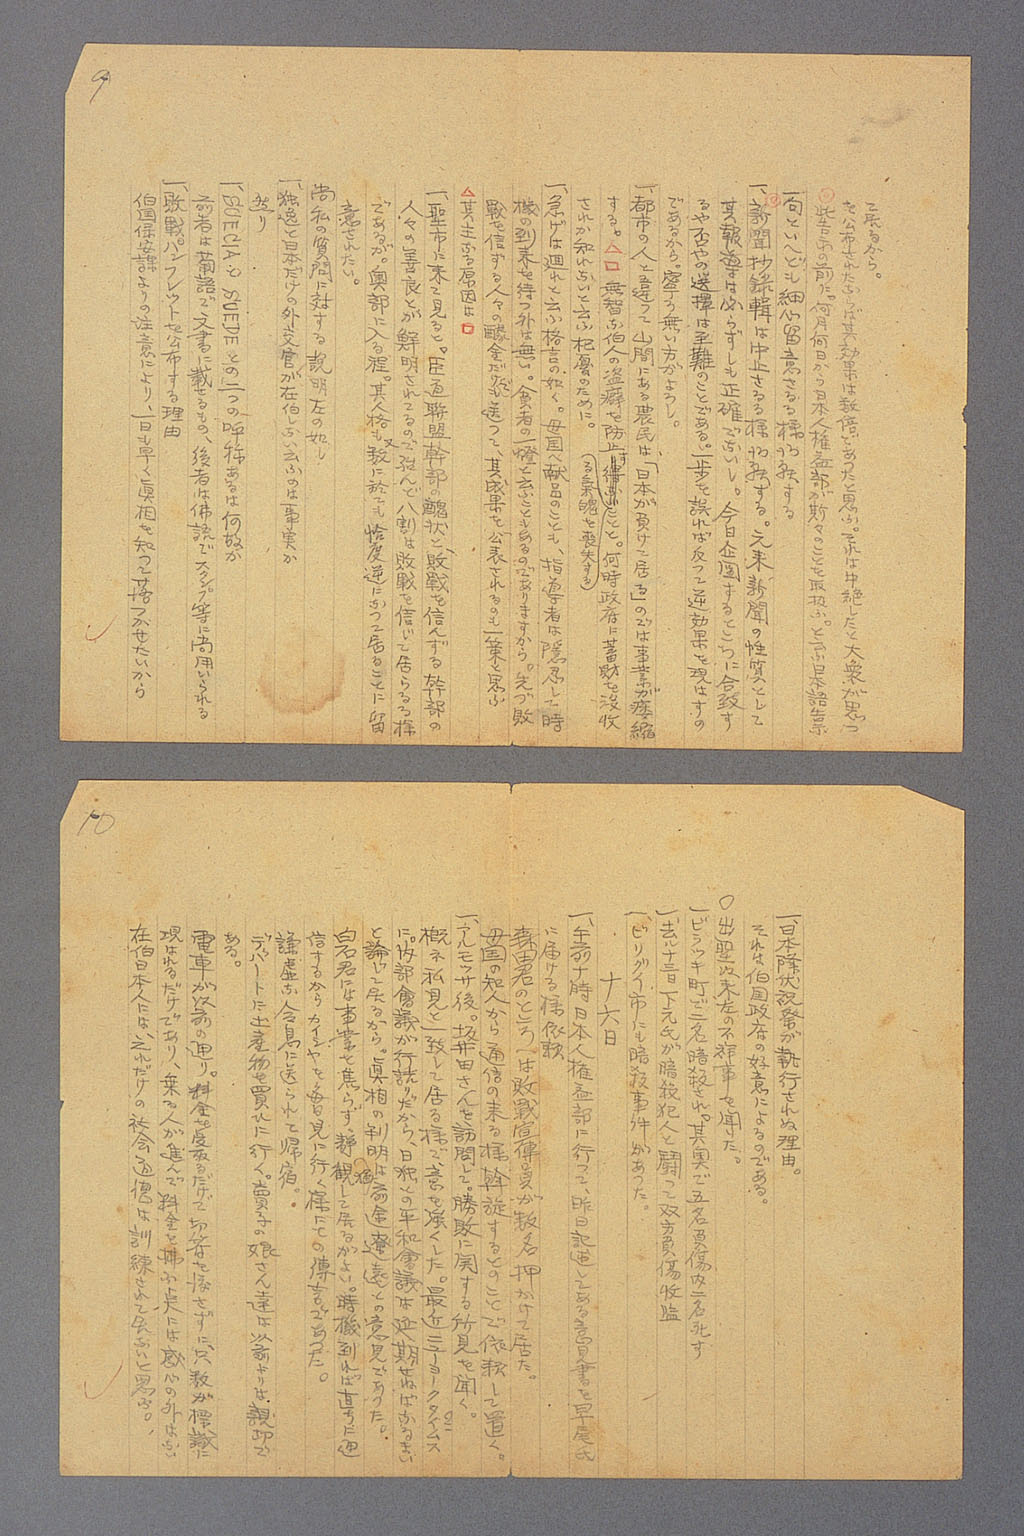 9
て居るから。
を公布されたならば其効果は数倍であつたと思ふ。それは中絶したと大衆が思つ
告示の前に、何月何日から日本人権益部が斯々のことを取扱ふ。と云ふ日本語告示
一句といへども細心留意さるる様お願する
一、新聞抄録輯は中止さるる様お願する。元来新聞の性質として
其報導は必らずしも正確でないし。今日企図するところに合致す
るや否やの選擇は至難のことである。一歩を誤れば反つて逆効果を現はすの
であるから。寧ろ無い方がよろし。
一、都市の人と違つて山間にある農民は、「日本が負けて居る」のでは事業が萎縮
する。△□無智な伯人の盗癖を防止し得ないこと。何時政府に蓄財を没收
(する氣魄を喪失する)
されか知れないと云ふ杞憂のために。
一、急げば廻れと云ふ格言の如く。母国へ献品のことも、指導者は隠忍して時
機の到来を待つ外は無い。貧者の一燈と云ふこともあるのでありますから。先づ敗
戦を信ずる人々の醵金だけでも送つて、其成果を公表されるのも一策と思ふ
△其主なる原因は□
一、聖市に来て見ると。臣道聯盟幹部の醜状と、敗戦を信んずる幹部の
人々の善良とが鮮明されてるので殆んど八割は敗戦を信じて居らるる様
であるが。奥部に入る程。其人格も又数に於ても恰度逆になつて居ることに留
意されたい。
尚私の質問に対する説明左の如し
一、独逸と日本だけの外交官が在伯しないと云ふのは事実か
然り
一、SUECIAとSUEDEとの二つの呼称あるは何故か
前者は葡語で文書に載せるもの、後者は佛語でスタンプ等に尚用いられる
一、敗戦パンフレツトを公布する理由
伯国保安課よりの注意により、一日も早く眞相を知つて落つかせたいから
10
一、日本降伏祝祭が執行されぬ理由。
それは伯国政府の好意によるのである。
○出聖以来左の不祥事を聞た。
一、ビラツキ町で二名暗殺され。其奥で五名負傷内二名死す
一、去ル十三日下元氏が暗殺犯人と闘つて双方負傷收監
一、ビリグイ市にも暗殺事件があつた。
十六日
一、午前十時日本人権益部に行つて、昨日記述してある意見書を早尾氏
に届ける様依頼
森田君のところへは敗戦宣傳員が数名押かけて居た。
母国の知人から通信の来る様斡旋するとのことで依頼して置く。
一、アルモツサ後。坂井田さんを訪問して。勝敗に関する所見を聞く。
概ネ私見と一致して居る様で、意を強くした。最近ニユーヨークタイムス
に。内部會議が行詰りだから、日独との平和會議は延期せねばなるまい
と論じて居るから。眞相の判明は尚前途遼遠との意見であつた。
白石君には事業を焦らず。静観して居るがよい。時機到れば直ちに通
信するからカインヤを毎日見に行く様にとの傳言であつた。
謙虚な令息に送られて帰宿。
デパートに土産物を買ひに行く。賣子の娘さん達は以前よりは親切で
ある。
電車が以前の通り。料金を受取るだけで切符を渡さずに、只数が標識に
現はれるだけであり、乗る人が進んで料金を拂ふ点には感心の外はない
在伯日本人には、それだけの社会道徳は訓練されて居ないと思ふ。